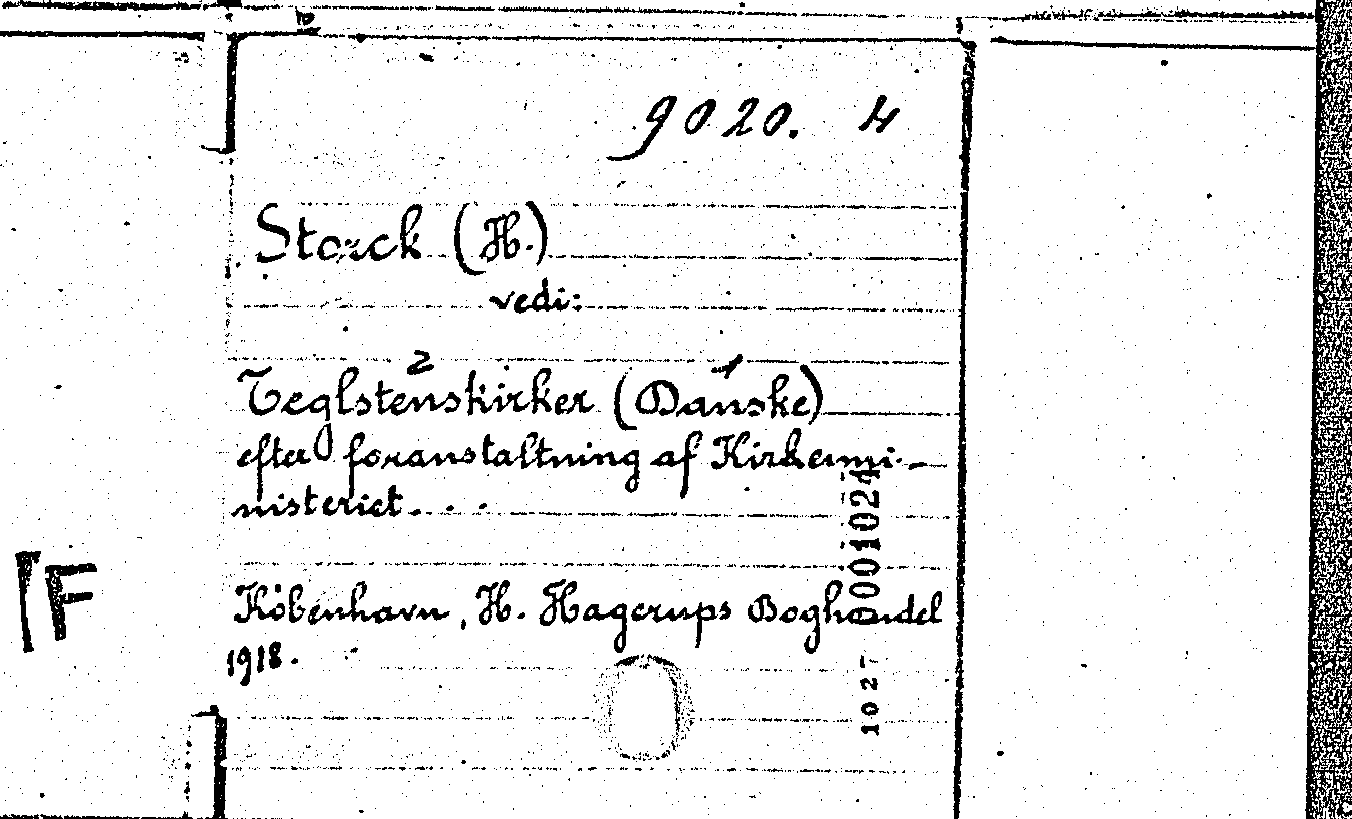 9020. 4
Storck (H.)
vedi:
2 1
Teglstenskirker (Danske)
efter foranstaltning af Kirkemi-
nisteriet. . .
København, H. Hagerups Boghandel
1918.
1027 0001024
F